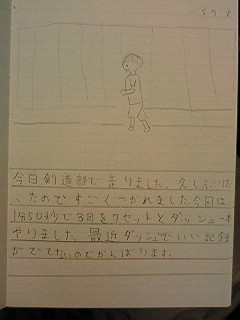 今日剣道部で走りました。久しぶりだ
ったのですごくつかれました今日は
1分50秒で3周を7セットとダッシュ一本
やりました。最近ダッシュでいい記録
がでてないのでがんばります。